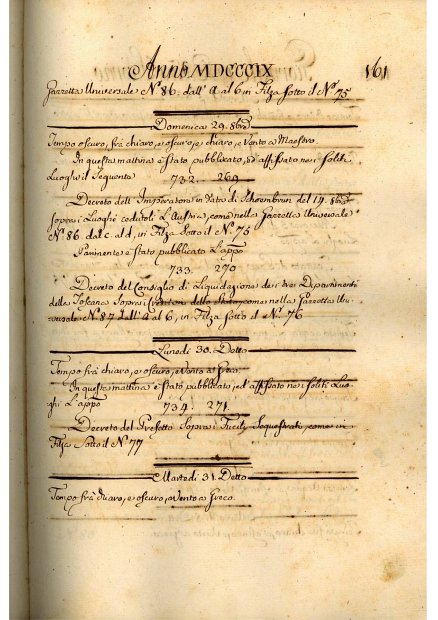 Anno MDCCCIX 161
Gazzetta Universale N.º 86. dall' a al 6 in Filza sotto il N.º 75
Domenica 29. 8bre
Tempo oscuro, frà chiaro, e oscuro, e chiaro, e Vento a Maestro.
In questa mattina è stato pubblicato, ed affissato nei soliti
Luoghi il seguente
732. 269
Decreto dell' Imperatore in data di Schoembrun del 14. 8bre
sopra i Luoghi cedutoli L'Austria, come nella Gazzetta Universale
N.º 86 dal c. al d, in Filza sotto il N.º 75
Parimente è stato pubblicato L'appº
733. 270
Decreto del Consiglio di Liquidazione dei tre Dipartimenti
della Toscana sopra i Creditori dello Stato, come nella Gazzetta Uni-
versale N.º 87 dall' a al 6, in Filza sotto il N.º 76
Lunedì 30. Detto
Tempo frà chiaro, e oscuro, e Vento a Greco.
In questa mattina è stato pubblicato, ed affissato nei soliti Luo-
ghi L'appº
734. 271.
Decreto del Prefetto sopra i Fucili Sequestrati, come in
Filza sotto il N.º 77
Martedì 31. Detto
Tempo frà chiaro, e oscuro, e Vento a Greco.